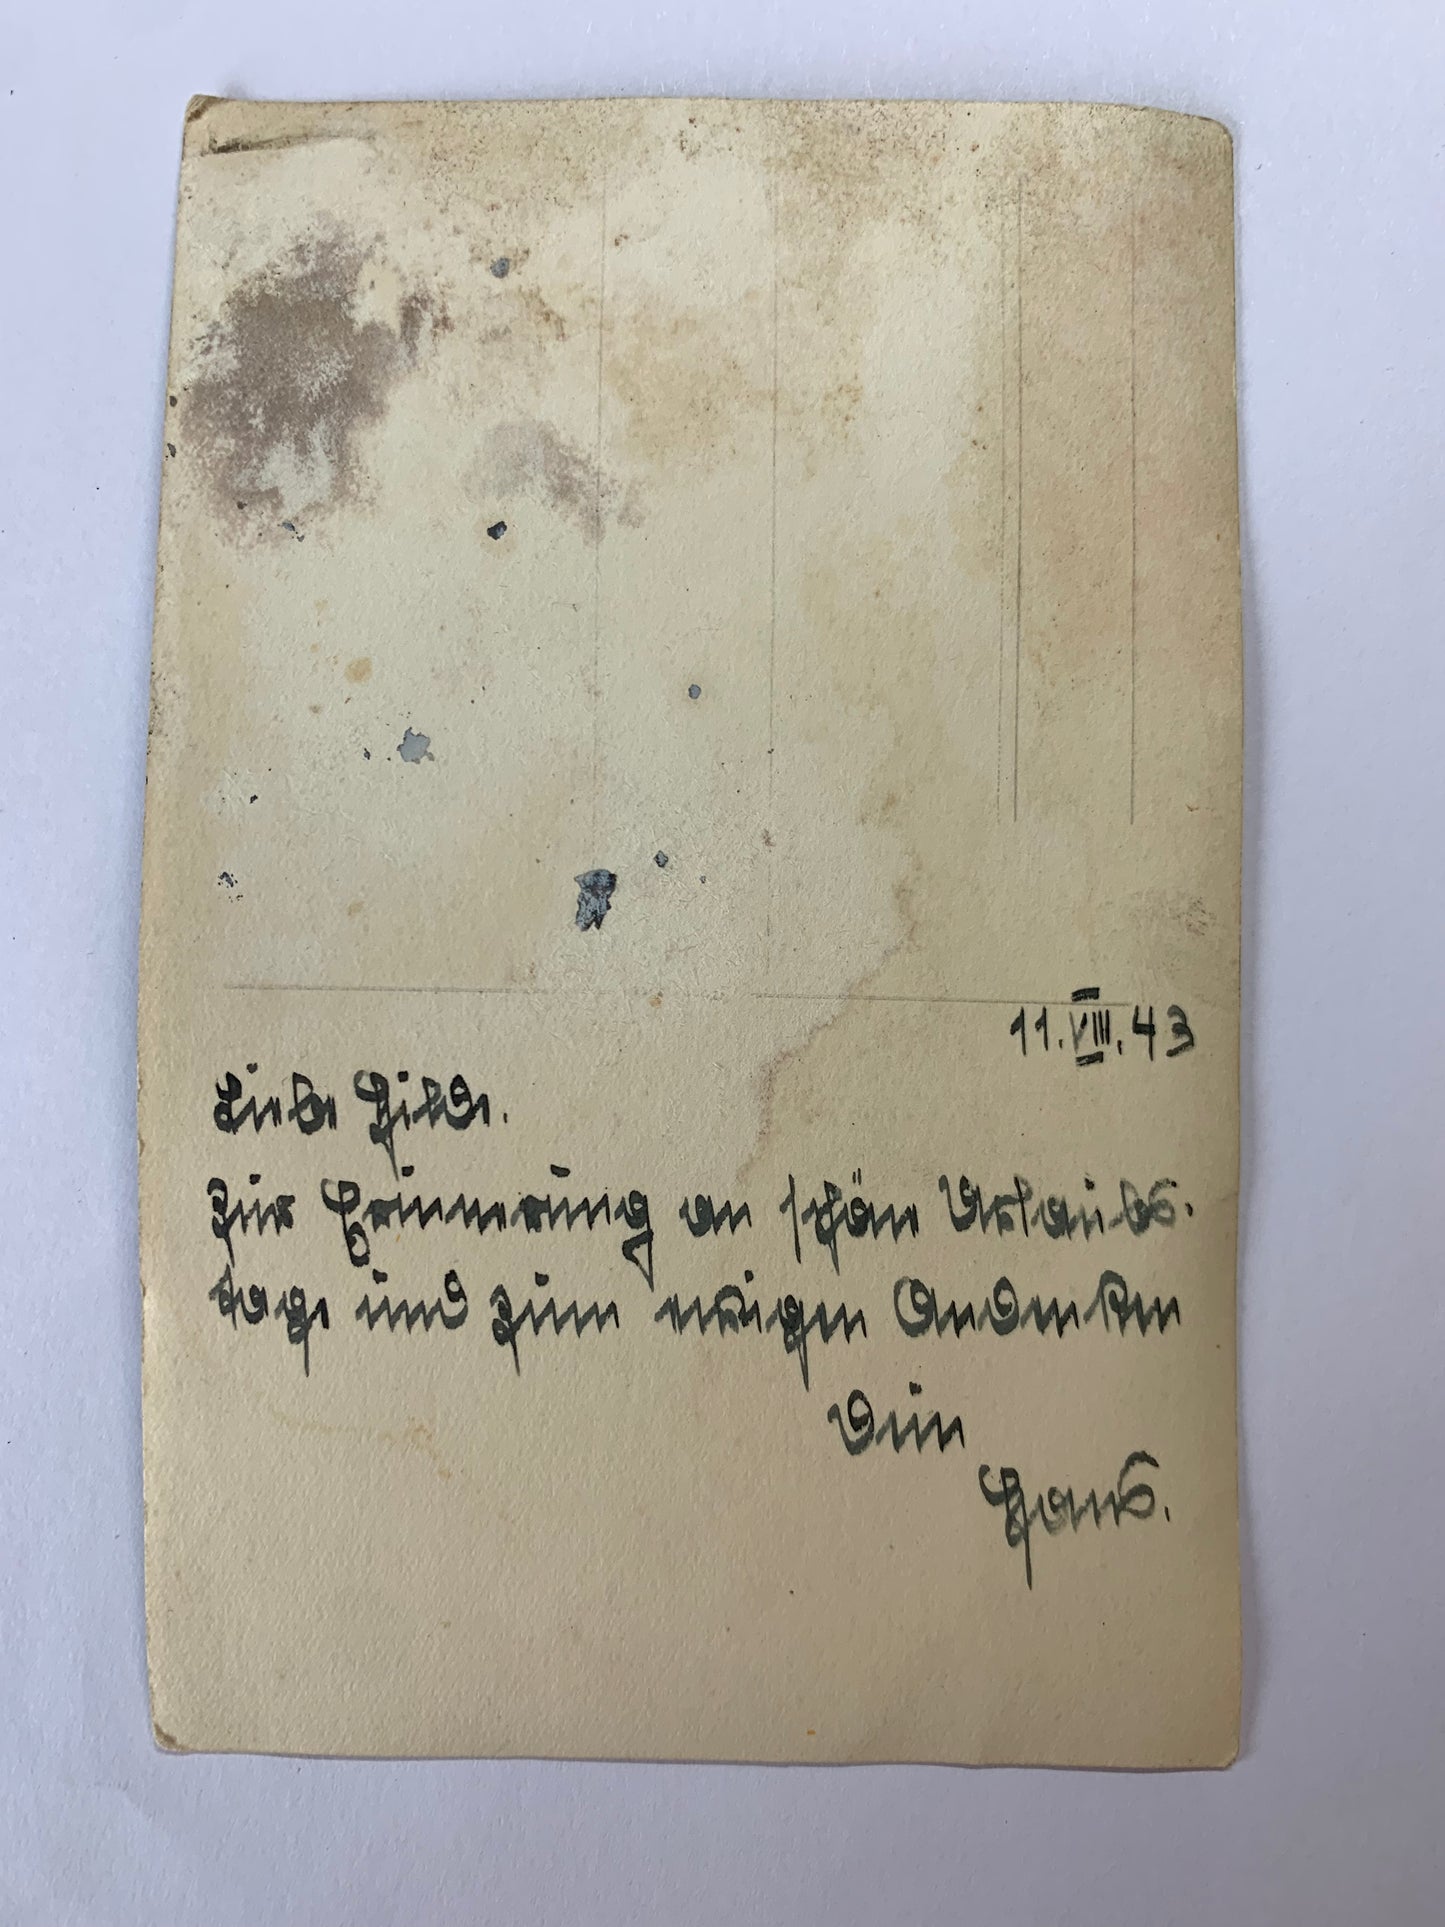 11.VIII.43
Liebe Hilde.
Zur Erinnerung an schöne Urlaubs.
tage und zum ewigen Andenken
Dein
Hans.